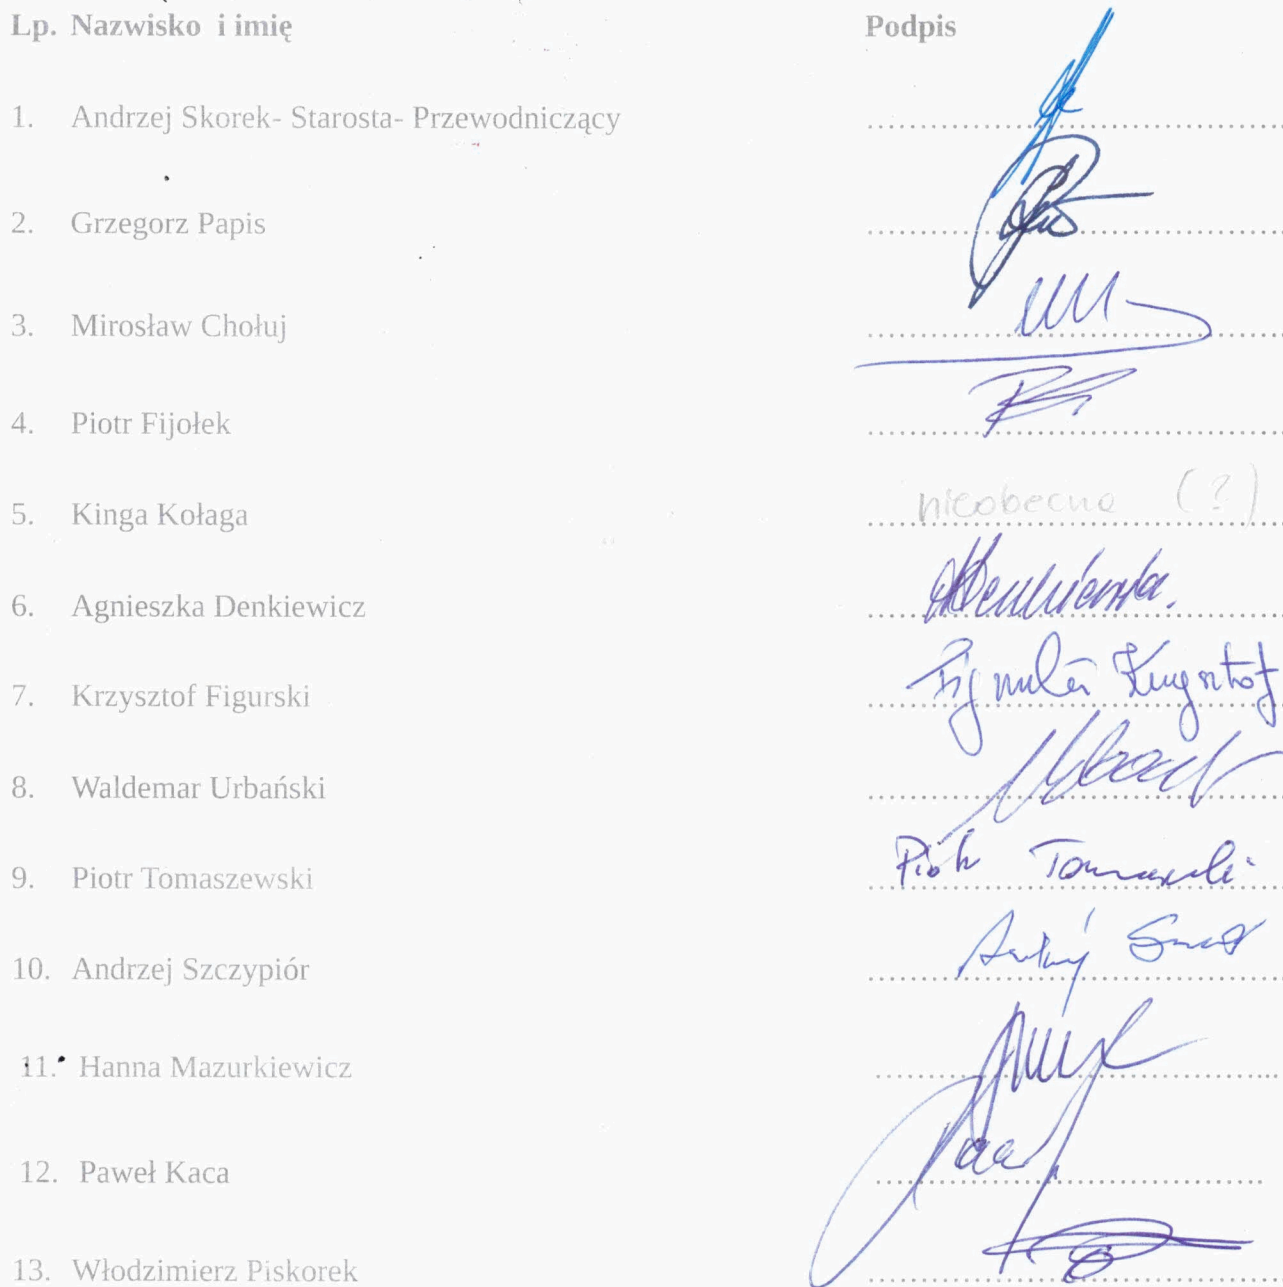 Lp. Nazwisko i imię Podpis
1. Andrzej Skorek- Starosta- Przewodniczący
2. Grzegorz Papis
3. Mirosław Chołuj
4. Piotr Fijołek
5. Kinga Kołaga nieobecna (?)
6. Agnieszka Denkiewicz
7. Krzysztof Figurski Krzysztof
8. Waldemar Urbański
9. Piotr Tomaszewski Piotr
10. Andrzej Szczypiór
11. Hanna Mazurkiewicz
12. Paweł Kaca
13. Włodzimierz Piskorek